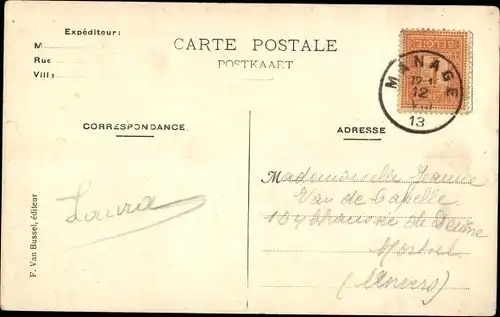 Expéditeur:
M
Rue
Ville
CARTE POSTALE
POSTKAART
MANAGE
12
13
CORRESPONDANCE
ADRESSE
Laura
Mademoiselle Jeanne
Van de Capelle
104 Chaussée de Deurne
Mortsel
(Anvers)
F. Van Bussel, éditeur